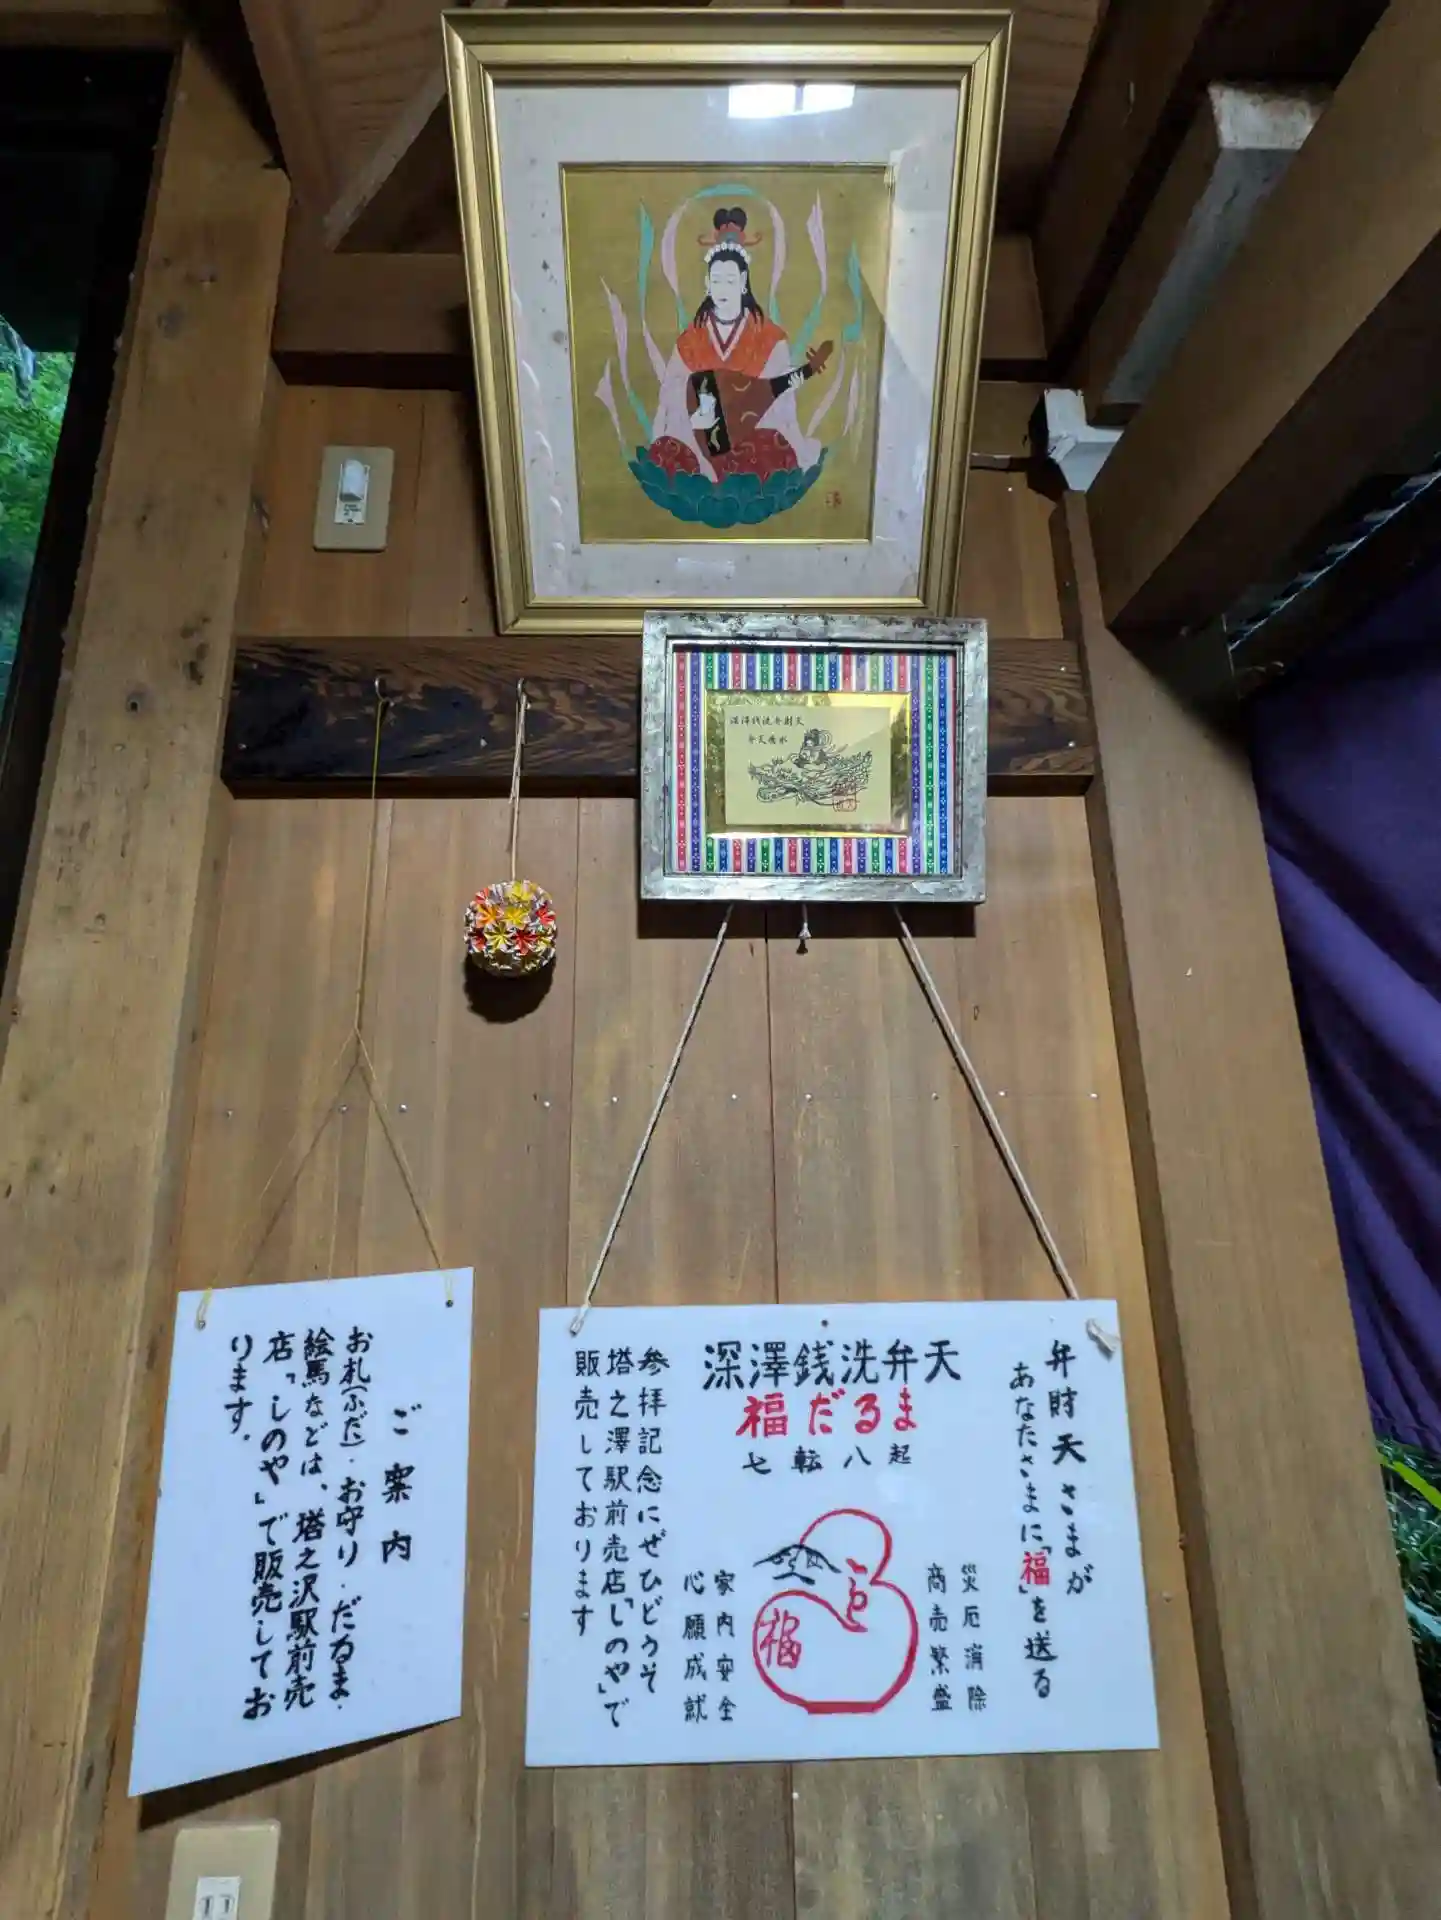 深澤銭洗弁財天
弁財天さまが
あなたさまに「福」を送る
深澤銭洗弁天
福だるま
七転八起
災厄消除
商売繁盛
福
家内安全
心願成就
参拝記念にぜひどうぞ
塔之澤駅前売店「しのや」で
販売しております
ご案内
お札(ふだ)・お守り・だるま・
絵馬などは、塔之沢駅前売
店「しのや」で販売してお
ります。